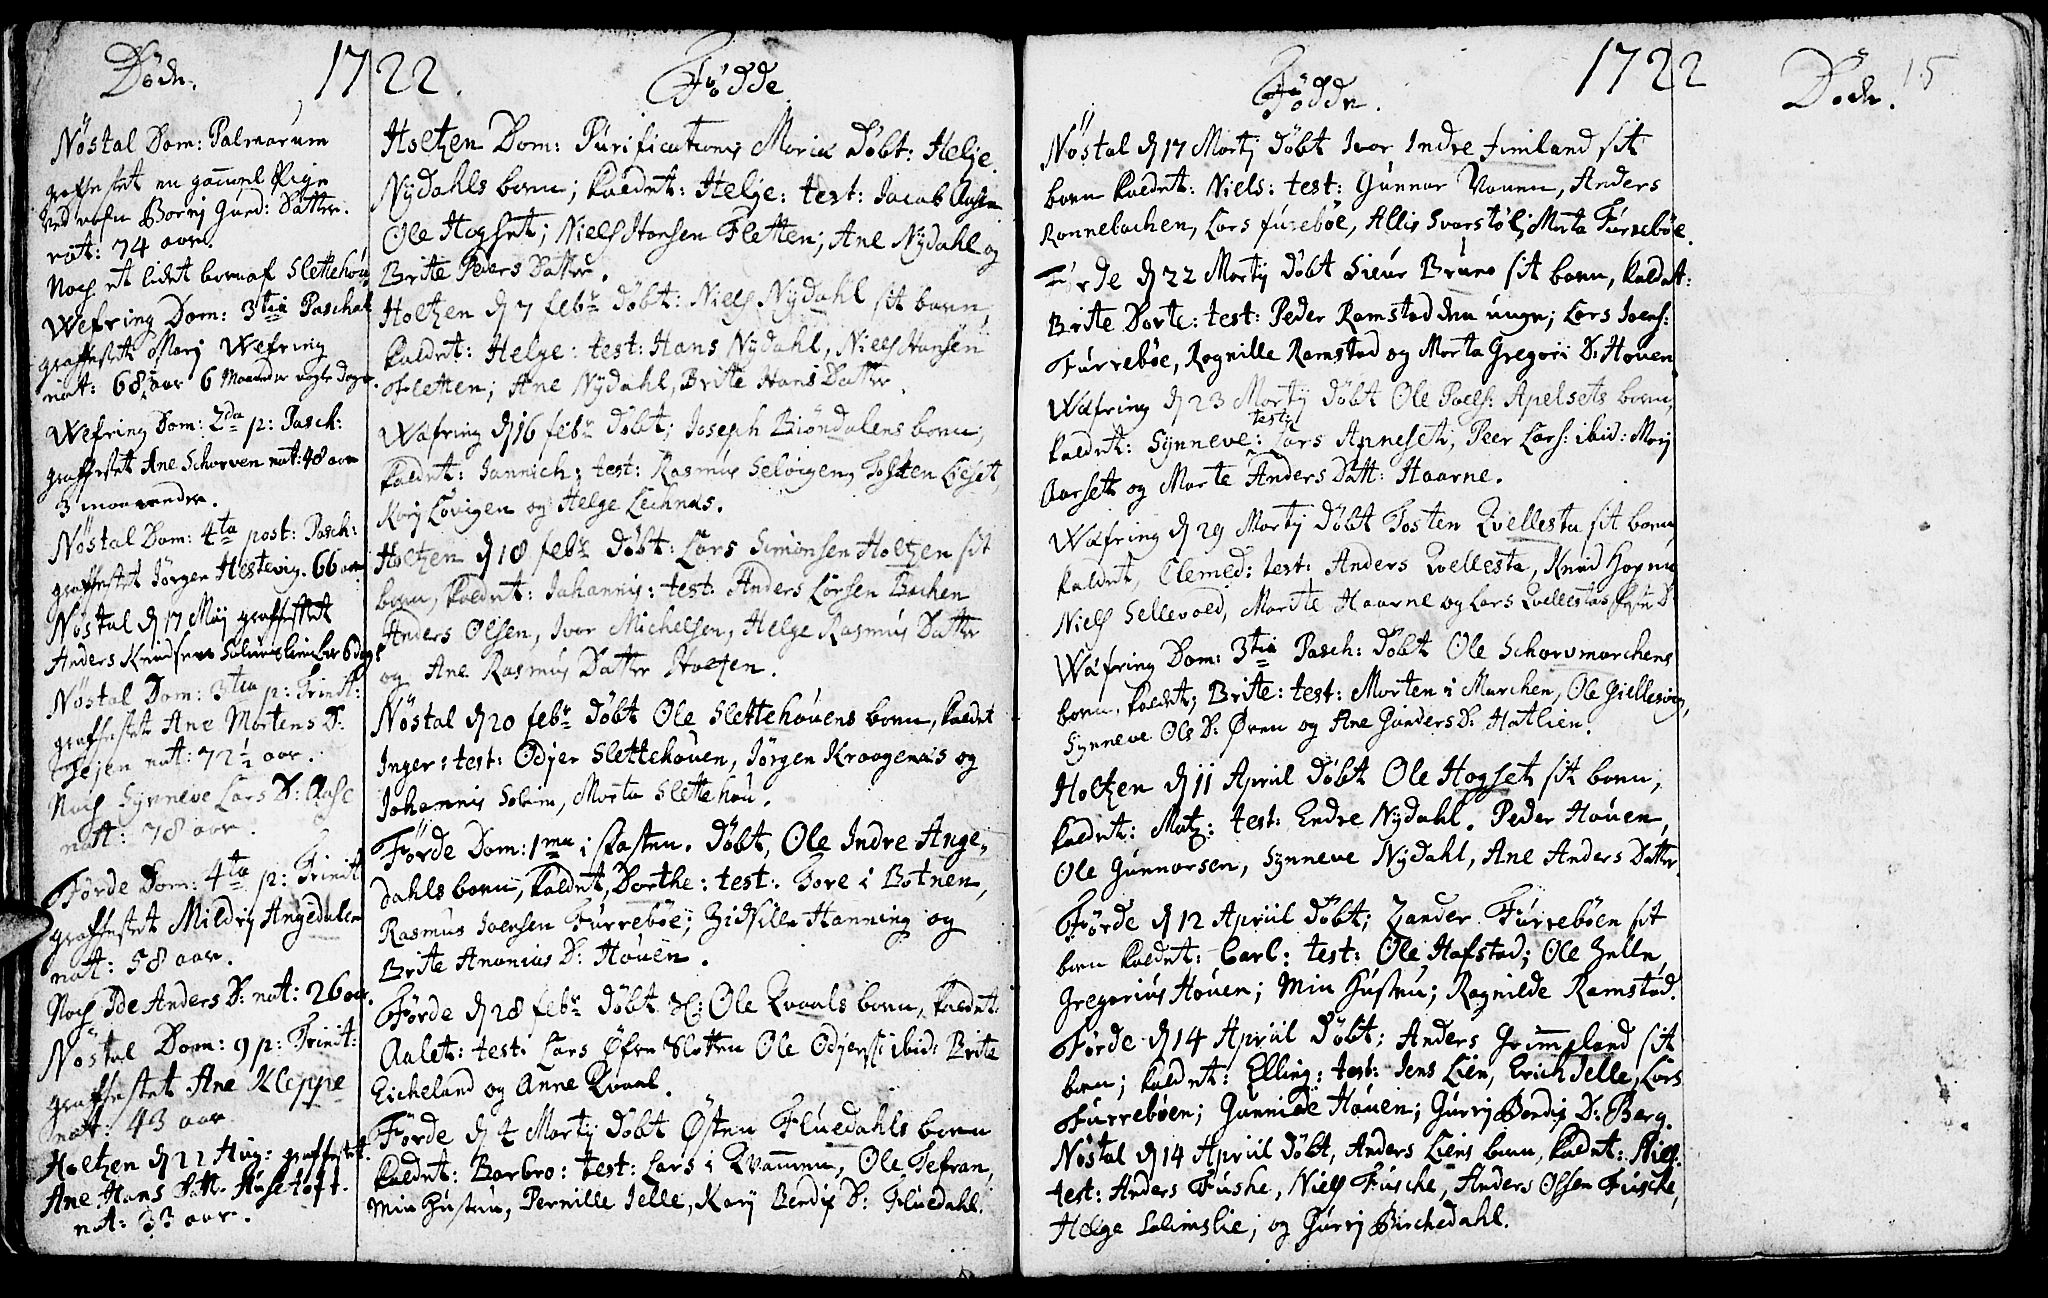 Døde.
1722.
Nøstal Dom: Palmarum
graffestet en gammel Pige
ved nafn Borrj Gund: Datter.
nat: 74 aar.
Noch et lidet barn af Slettehou
Wefring Dom: 3tia Paschat
graffestet Marj Wefring
nat: 68 aar 6 Maaneder nogle dage.
Wefring Dom: 2da p: Pasch:
graffestet Ane Schorven nat: 48 aar
3 maaneder.
Nøstal Dom: 4ta post: Pasch:
graffestet Jørgen Hestevig. 66 aar
Nøstal d 17 Maj graffestet
Anders Knudsen 6 dage
Nøstal Dom: 3tia p: Trinit:
graffestet Ane Mortens D:
nat: 72½ aar.
Noch Synneve Lars D: Aase
natt: 78 aar.
Førde Dom: 4ta p: Trinit
graffestet Mildrij Angedalen
natt: 58 aar.
Noch Ide Anders D: nat: 26 aar.
Nøstal Dom: 9 p: Trinit:
graffestet Ane Kleppe
nat: 43 aar
Holtzen d 22 Aug: graffestet.
Ane Hans Datt. Husetoft.
nat: 33 aar.
Fødde
Holtzen Dom: Purificationis Mariæ Døbt: Helje
Nydahls barn; kaldet: Helje: test: Jacob Aasen
Ole Hogset; Niels Hansen Fletten; Ane Nydahl og
Britte Peders Datter.
Holtzen d 7 febr Døbt: Niels Nydahl sit barn,
kaldet: Helge: test: Hans Nydahl, Niels Hansen
Fletten; Ane Nydahl, Brite Hans Datter.
Wæfring d 16 febr Døbt; Joseph Biøndalens barn,
kaldet: Jannich; test: Rasmus Seløigen, Tosten Lieset
Karj Løvigen og Helge Lechnæs.
Holtzen d 18 febr Døbt: Lars Simonsen Holtzen sit
barn, kaldet: Johannis: test: Anders Larsen Bachen
Anders Olsen, Ivar Michelsen, Helge Rasmus Datter
og Ane Rasmus Datter Holtzen.
Nøstal d 20 febr Døbt Ole Slettehouens barn, kaldet
Inger: test: Odjer Slettehouen, Jørgen Kraagenæs og
Johannis Solem, Marta Slettehou.
Førde Dom: 1ma i Fasten. Døbt, Ole Indre Ange-
dahls barn, kaldet, Dorthe: test: Tore i Botnen,
Rasmus Joensen Furrebøe; Zidsille Hanning og
Brite Ananias D: Houen.
Førde d 28 febr Døbt Ole Kvaals barn, kaldet
Aalet: test: Lars Øfre Slotten Ole Odjerss: ibid: Brite
Eicheland og Anne Kvaal.
Førde d 4 Martij Døbt Østen Fluedahls barn
kaldet: Barbro: test: Lars i Kvammen, Ole Tefran,
Min Hustru, Pernille Jelle, Karj Bendix D: Fluedahl.
1722
15
Fødde.
Døde.
Nøstal d 17 Martij Døbt Ivar Indre Fimland sit
barn kaldet: Niels: test: Gunnar Vonen, Anders
Rønnebachen, Lars furebøe, Allis Svarstøl; Marta Furrebøe.
Førde d 22 Martij Døbt Sieur Bruno sit barn, kaldet:
Brite Dorte: test: Peder Ramstad den unge; Lars Joens:
Furrebøe, Ragnille Ramstad og Marta Gregori D: Houen.
Wæfring d 23 Martij Døbt Ole Poels: Apelsets barn,
kaldet: Synneve: test: Lars Apneseth, Peer Lars: ibid: Marj
Aarseth og Marte Anders Datt: Haarne.
Wæfring d 29 Martij Døbt Tosten Kvellesta sit barn,
kaldet, Clemed: test: Anders Kvellesta, Knud
Niels Sellevold, Marite Haarne og Lars Kvellestas
Wæfring Dom: 3tia Pasch: Døbt Ole Schorvmarchens
barn, kaldet; Brite: test: Morten i Marchen, Ole Giellesvig,
Synneve Ols D: Øren og Ane Gunders D: Hatlien.
Holtzen d 11 April Døbt Ole Hogset sit barn,
kaldet: Matz: test: Endre Nydahl. Peder Houen,
Ole Gunnarsen, Synneve Nydahl, Ane Anders Datter
Førde d 12 Apriil Døbt; Zander Furrebøen sit
barn kaldet: Carl: test: Ole Hafstad; Ole Zelle,
Gregorius Houen; Min Hustru; Ragnilde Ramstad.
Førde d 14 Apriil Døbt; Anders Grimmeland sit
barn; kaldet: Elling: test: Jens Lien, Erich Jelle, Lars
Furrebøen; Gunnilde Houen; Gurrj Bendix D: Berg.
Nøstal d 14 Apriil Døbt, Anders Liens barn, kaldet: Niels
test: Anders Fushe, Niels Fusche, Anders Olssen Fusche,
Helge Solimslie, og Gurrj Birchedahl.